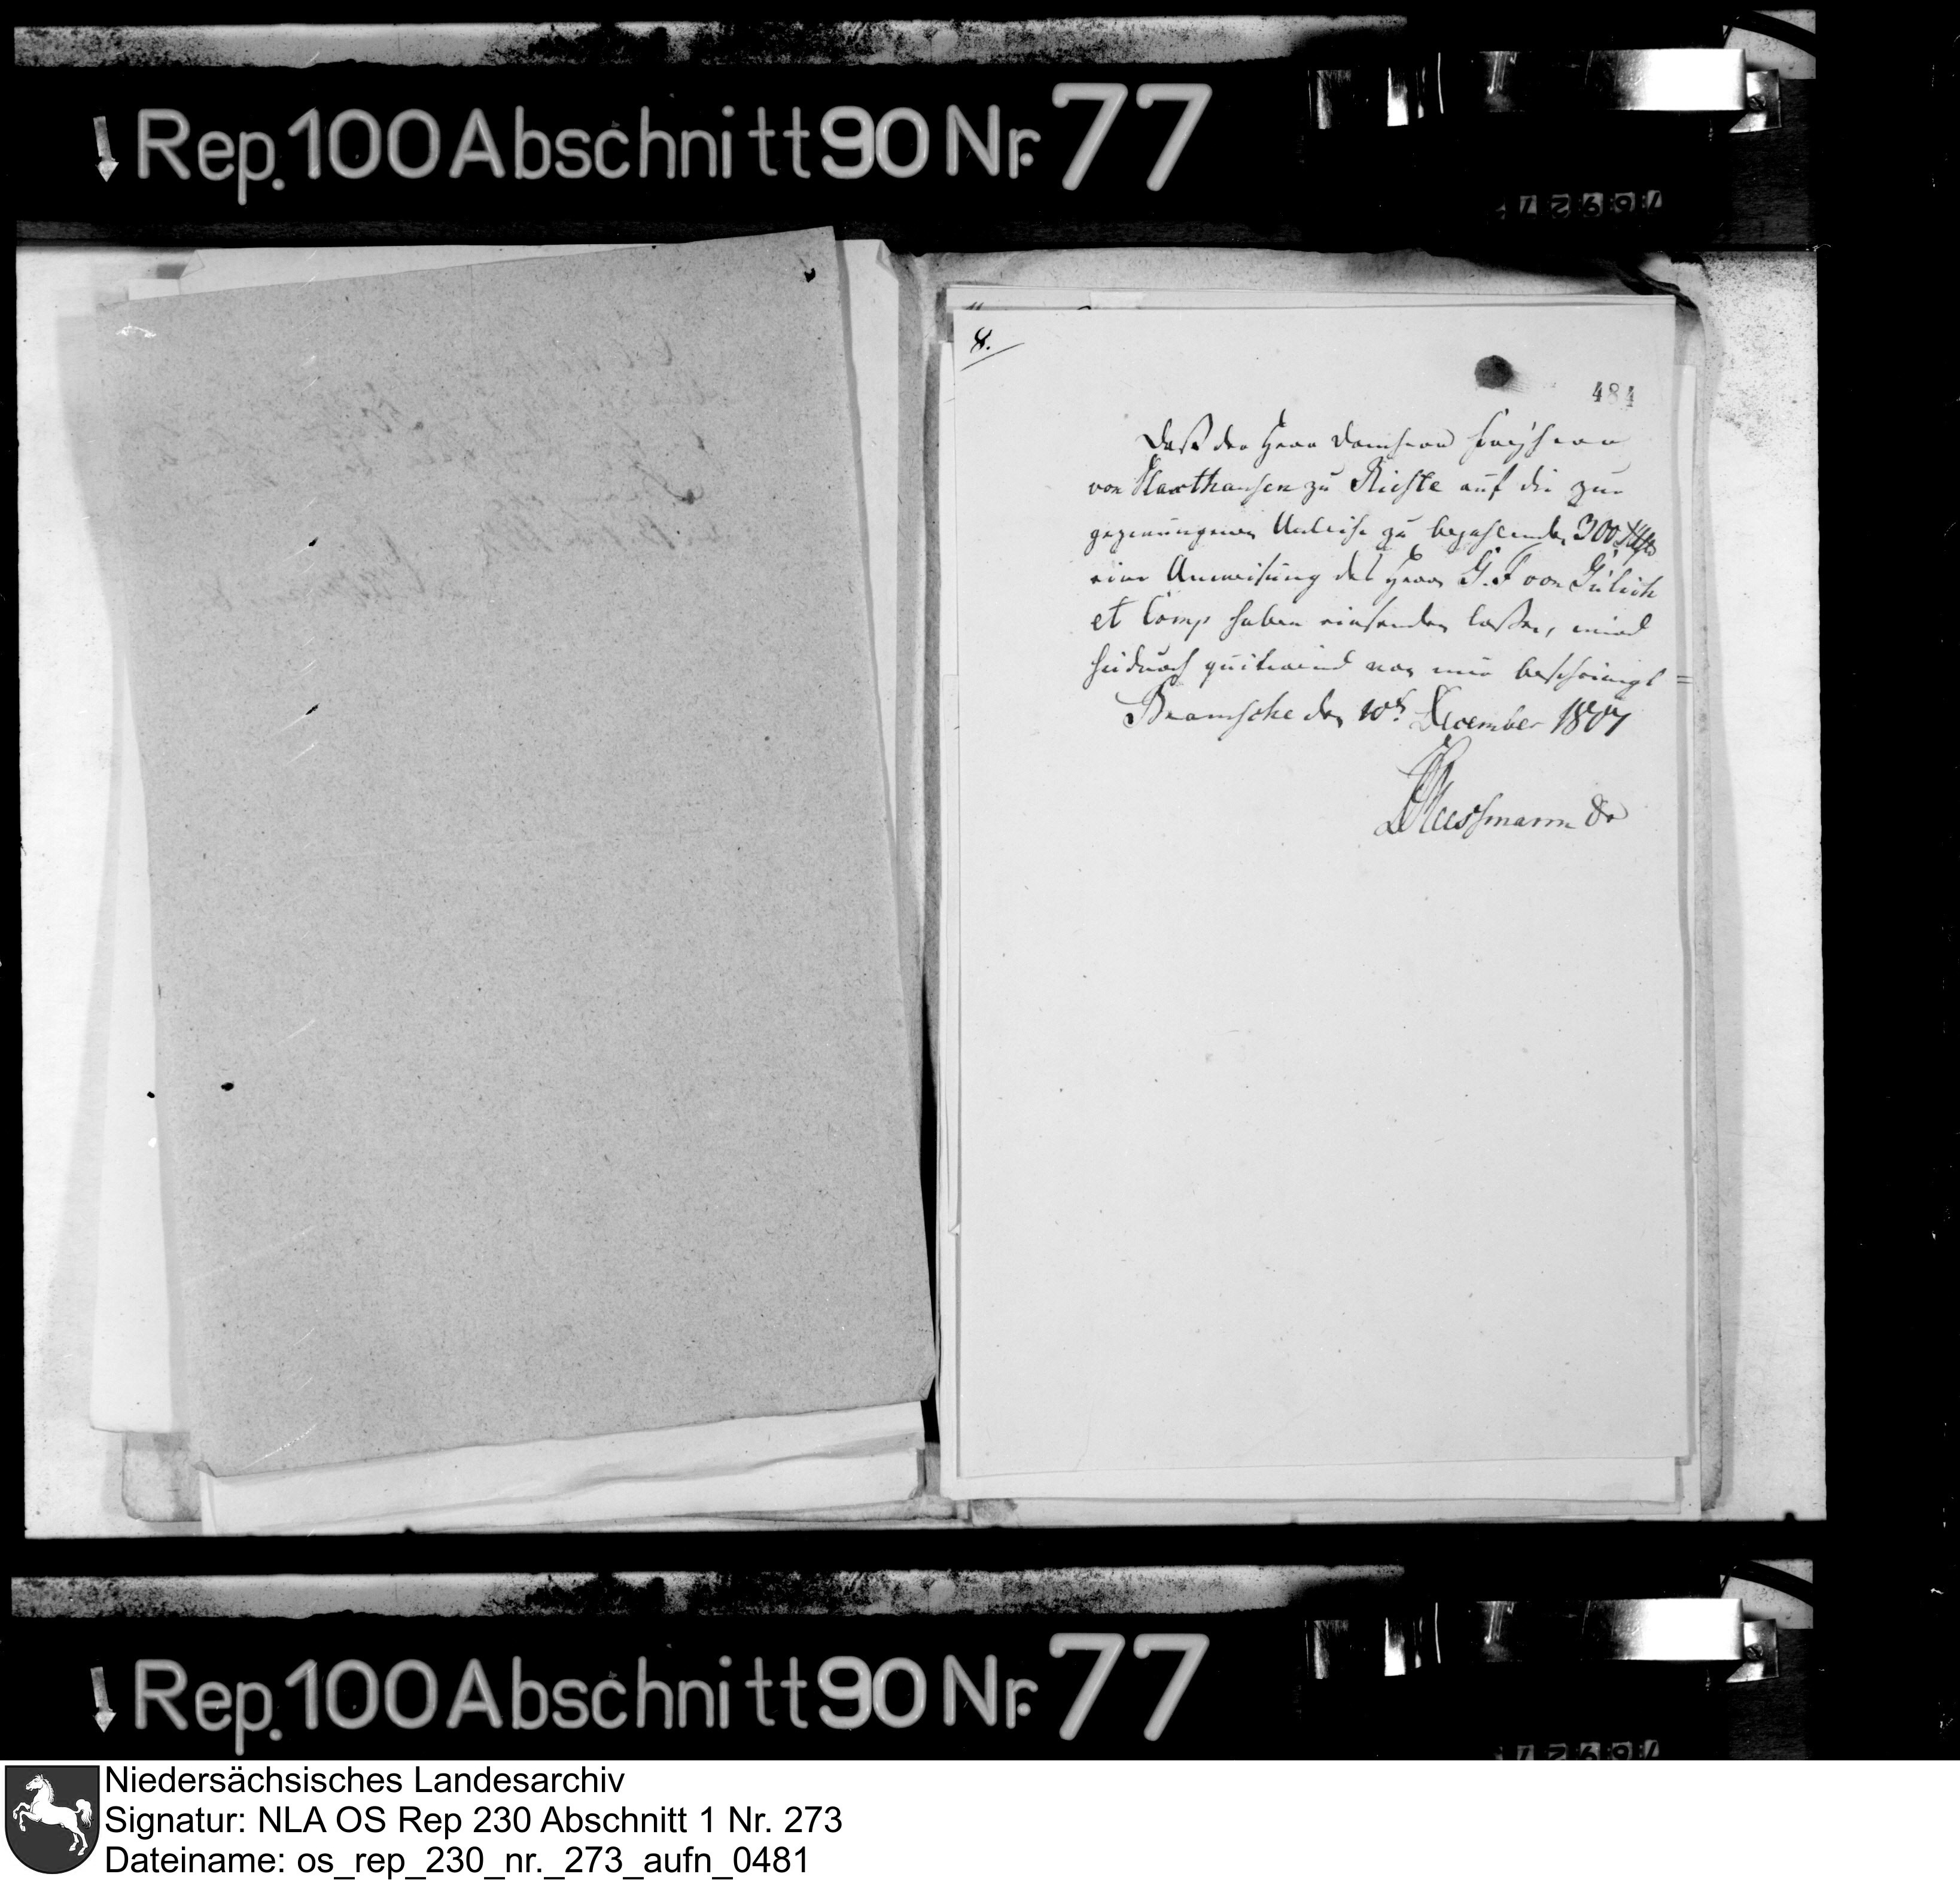 Rep. 100 Abschnitt 90 Nr. 77
8.
484
Daß der Herr Domherr Freyherr
von Haxthausen zu Rieste auf die zur
gezwungenen Anleihe zu bezahlenden 300
eine Anweisung des Herrn G. F von Gülich
et Comp haben einsenden laßen, wird
hiedurch quitirend von mir bescheinigt =
Bramsche den 10t December 1807
Rep. 100 Abschnitt 90 Nr. 77
Niedersächsisches Landesarchiv
Signatur: NLA OS Rep 230 Abschnitt 1 Nr. 273
Dateiname: os_rep_230_nr._273_aufn_0481